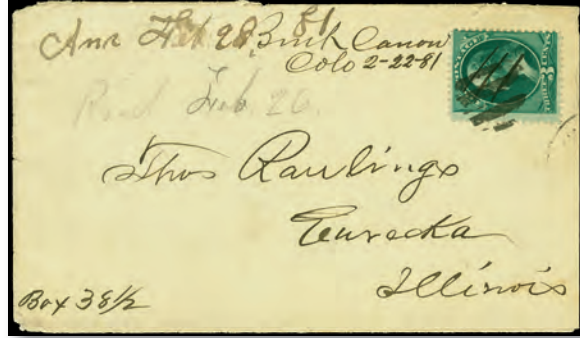 Ans Feb 28, 81
Buck Canon
Colo 2-22-81
Recd Feb. 26.
Thos Rawlings
Eurecka
Illinois
Box 38½